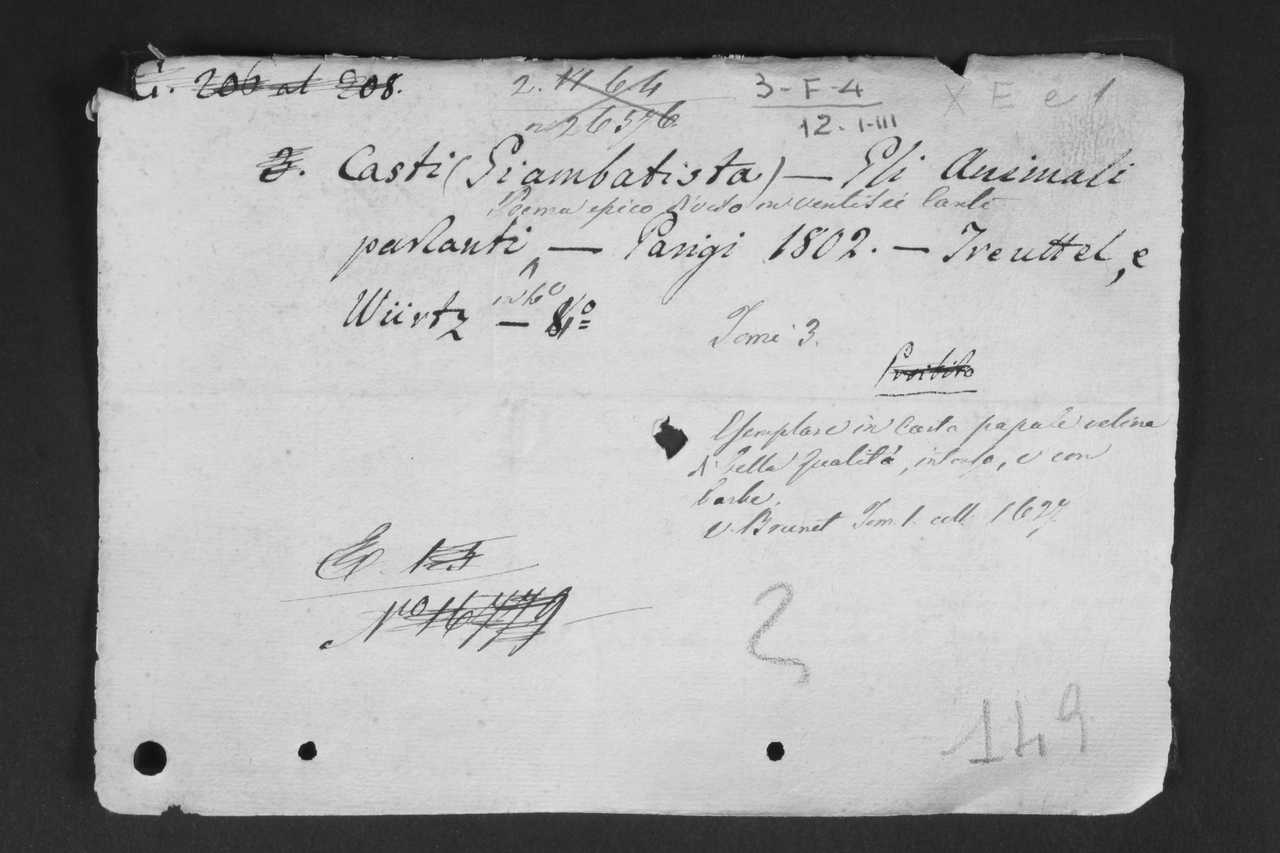 G. 206 al 208.
2. 11 6 4
n 26576
3-F-4
12. I-III
X E e 1
3. Casti (Giambatista) — Gli Animali
Poema epico diviso in ventisei Canti
parlanti — Parigi 1802. — Treuttel, e
Würtz — 8º
in 6º
Tomi 3.
Proibito
Esemplare in Carta papale velina
di bella qualità, intonso, e con
barbe.
V. Brunet Tom. 1. coll. 1627
E.
Nº 16779
2
149